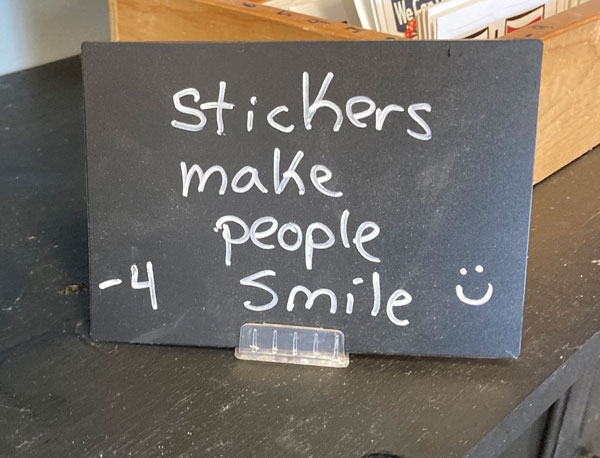 We Can
Stickers
make
people
-4 Smile :)